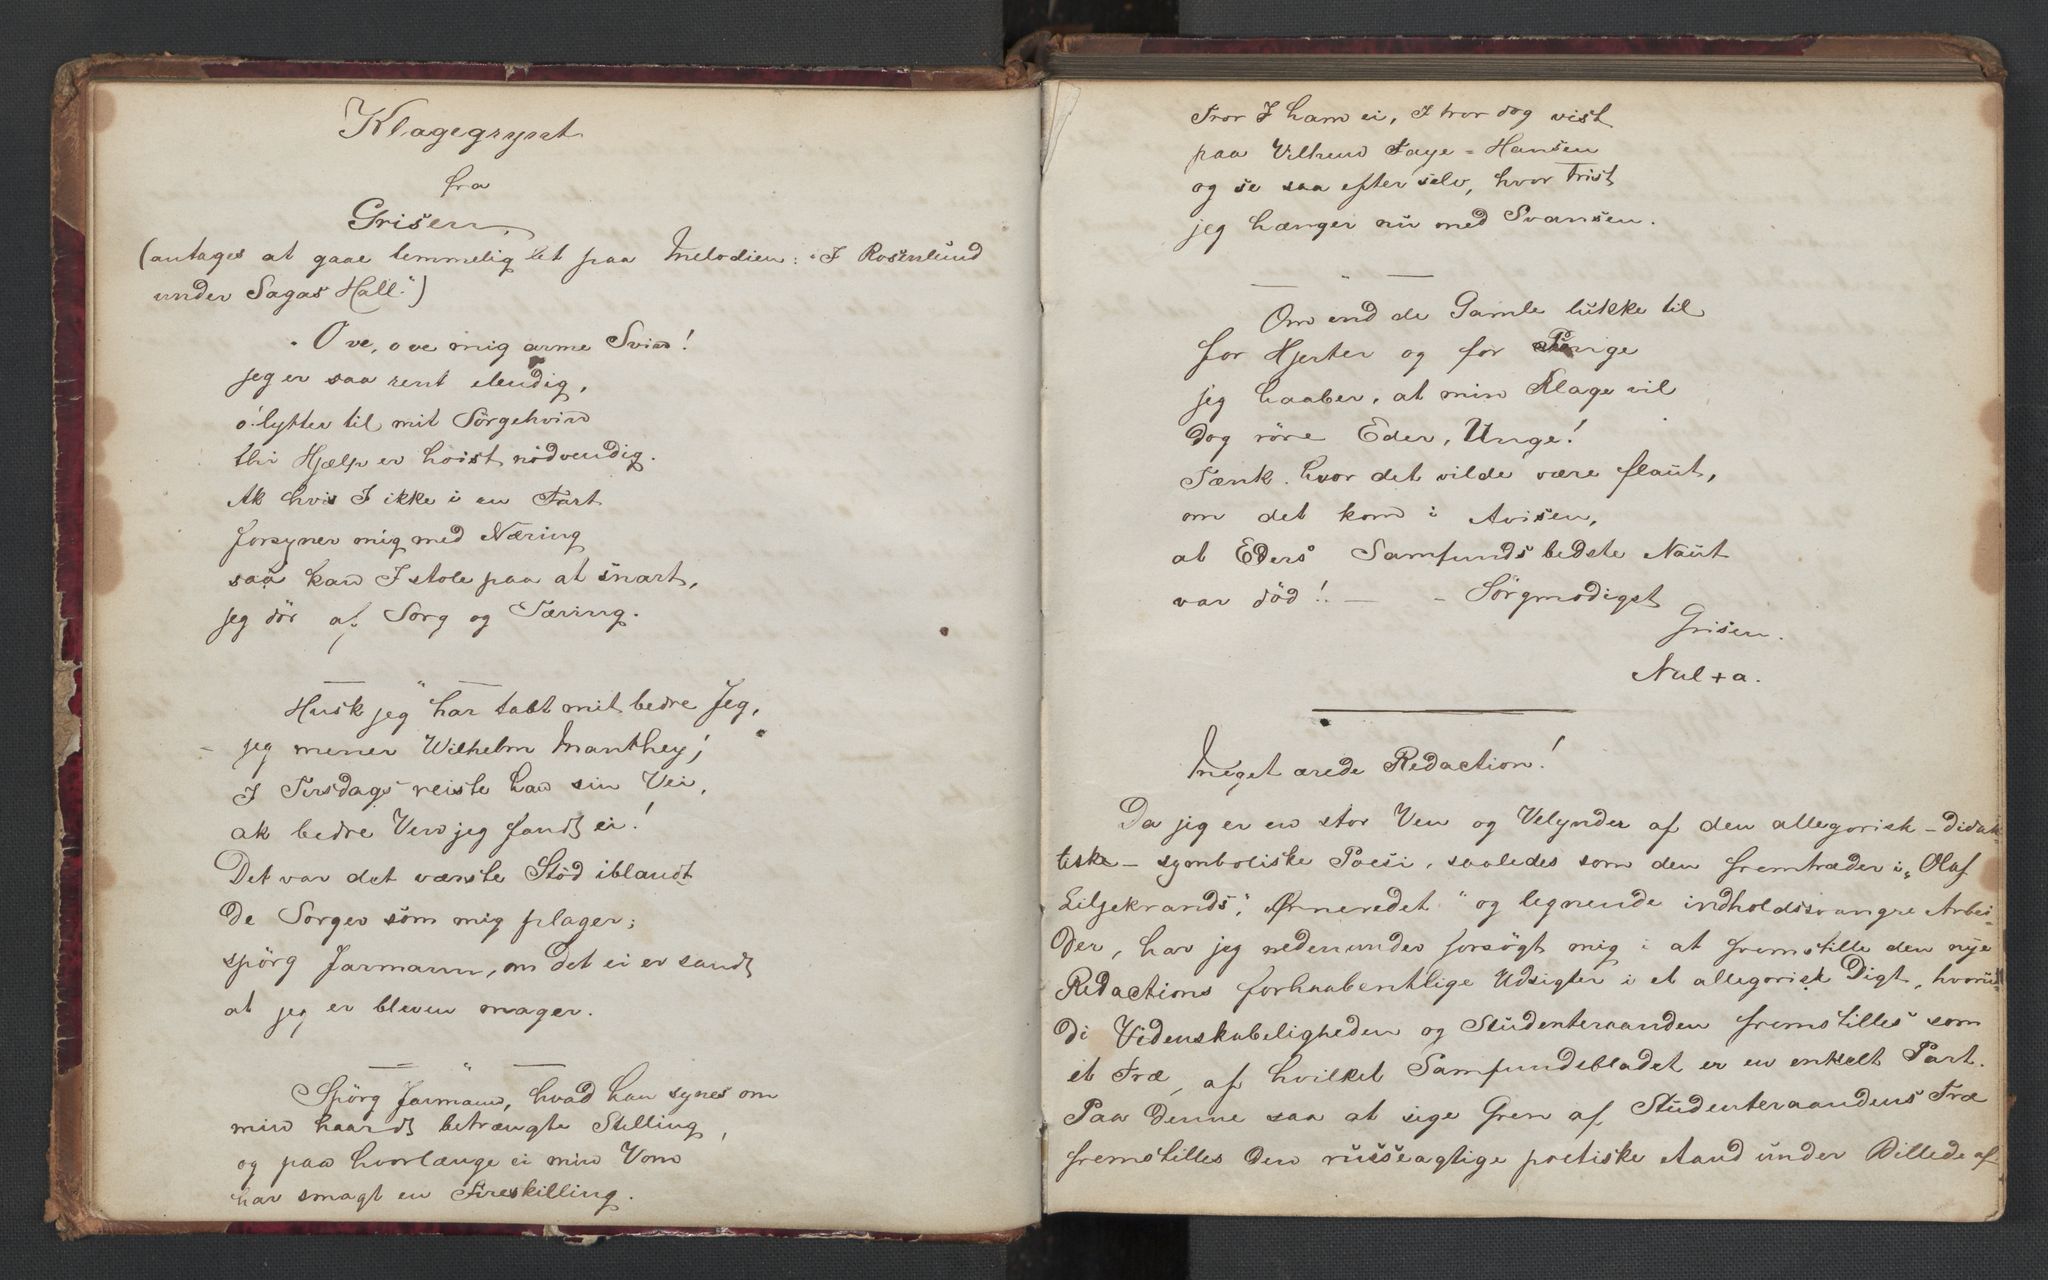 Klagegrynt
fra
Grisen.
(antages at gaae temmelig let paa Melodien: "I Rosenlund
under Sagas Hall.")
"O ve, o ve mig arme Svin!
jeg er saa rent elendig,
o! lytter til mit Sörgehvin
thi Hjælp er hoist nödvendig.
Ak hvis I ikke i en Fart
forsyner mig med Næring
saa kan I stole paa at snart,
jeg dör af Sorg og Tæring.
Husk jeg har tabt mit bedre Jeg,
jeg mener Wilhelm Manthey;
I Tirsdags reiste han sin Vei,
ak bedre Ven jeg fandt ei!
Det var det værste Stöd iblandt
De Sorger som mig plager;
spörg Jarmann, om det ei er sandt
at jeg er bleven mager.
Spörg Jarmann, hvad han synes om
min haardt betrængte Stilling,
og paa hvorlænge ei min Vom
har smagt en Fireskilling.
Tror I ham ei, I tror dog vist
paa Vilhem Faye-Hansen
og se saa efter selv, hvor trist
jeg hænger nu med Svansen.
Om end de Gamle lukke til
for Hjerter og for Punge
jeg haaber, at min Klage vil
dog röre Eder, Unge!
Tænk hvor det vilde være flaut,
om det kom i Avisen,
at Eders Samfunds bedste Naut
var död!! — - Sörgmodigst
Grisen.
Nul + a.
Meget ærede Redaction!
Da jeg er en stor Ven og Velynder af den allegorisk-didak-
tiske-symboliske Poesi, saaledes som den fremtræder i "Olaf
Liljekrands", "Ørneredet" og lignende indholdssvangre Arbei-
der, har jeg nedenunder forsögt mig i at fremstille den nye
Redactions forhaabentlige Udsigter i et allegorisk Digt, hvori
di Videnskabeligheden og Studenteraanden fremstilles som
et Træ, af hvilket Samfundsbladet er en enkelt Part.
Paa denne saa at sige Gren af Studenteraandens Træ
fremstilles den russeagtige poetiske Aand under Billede af